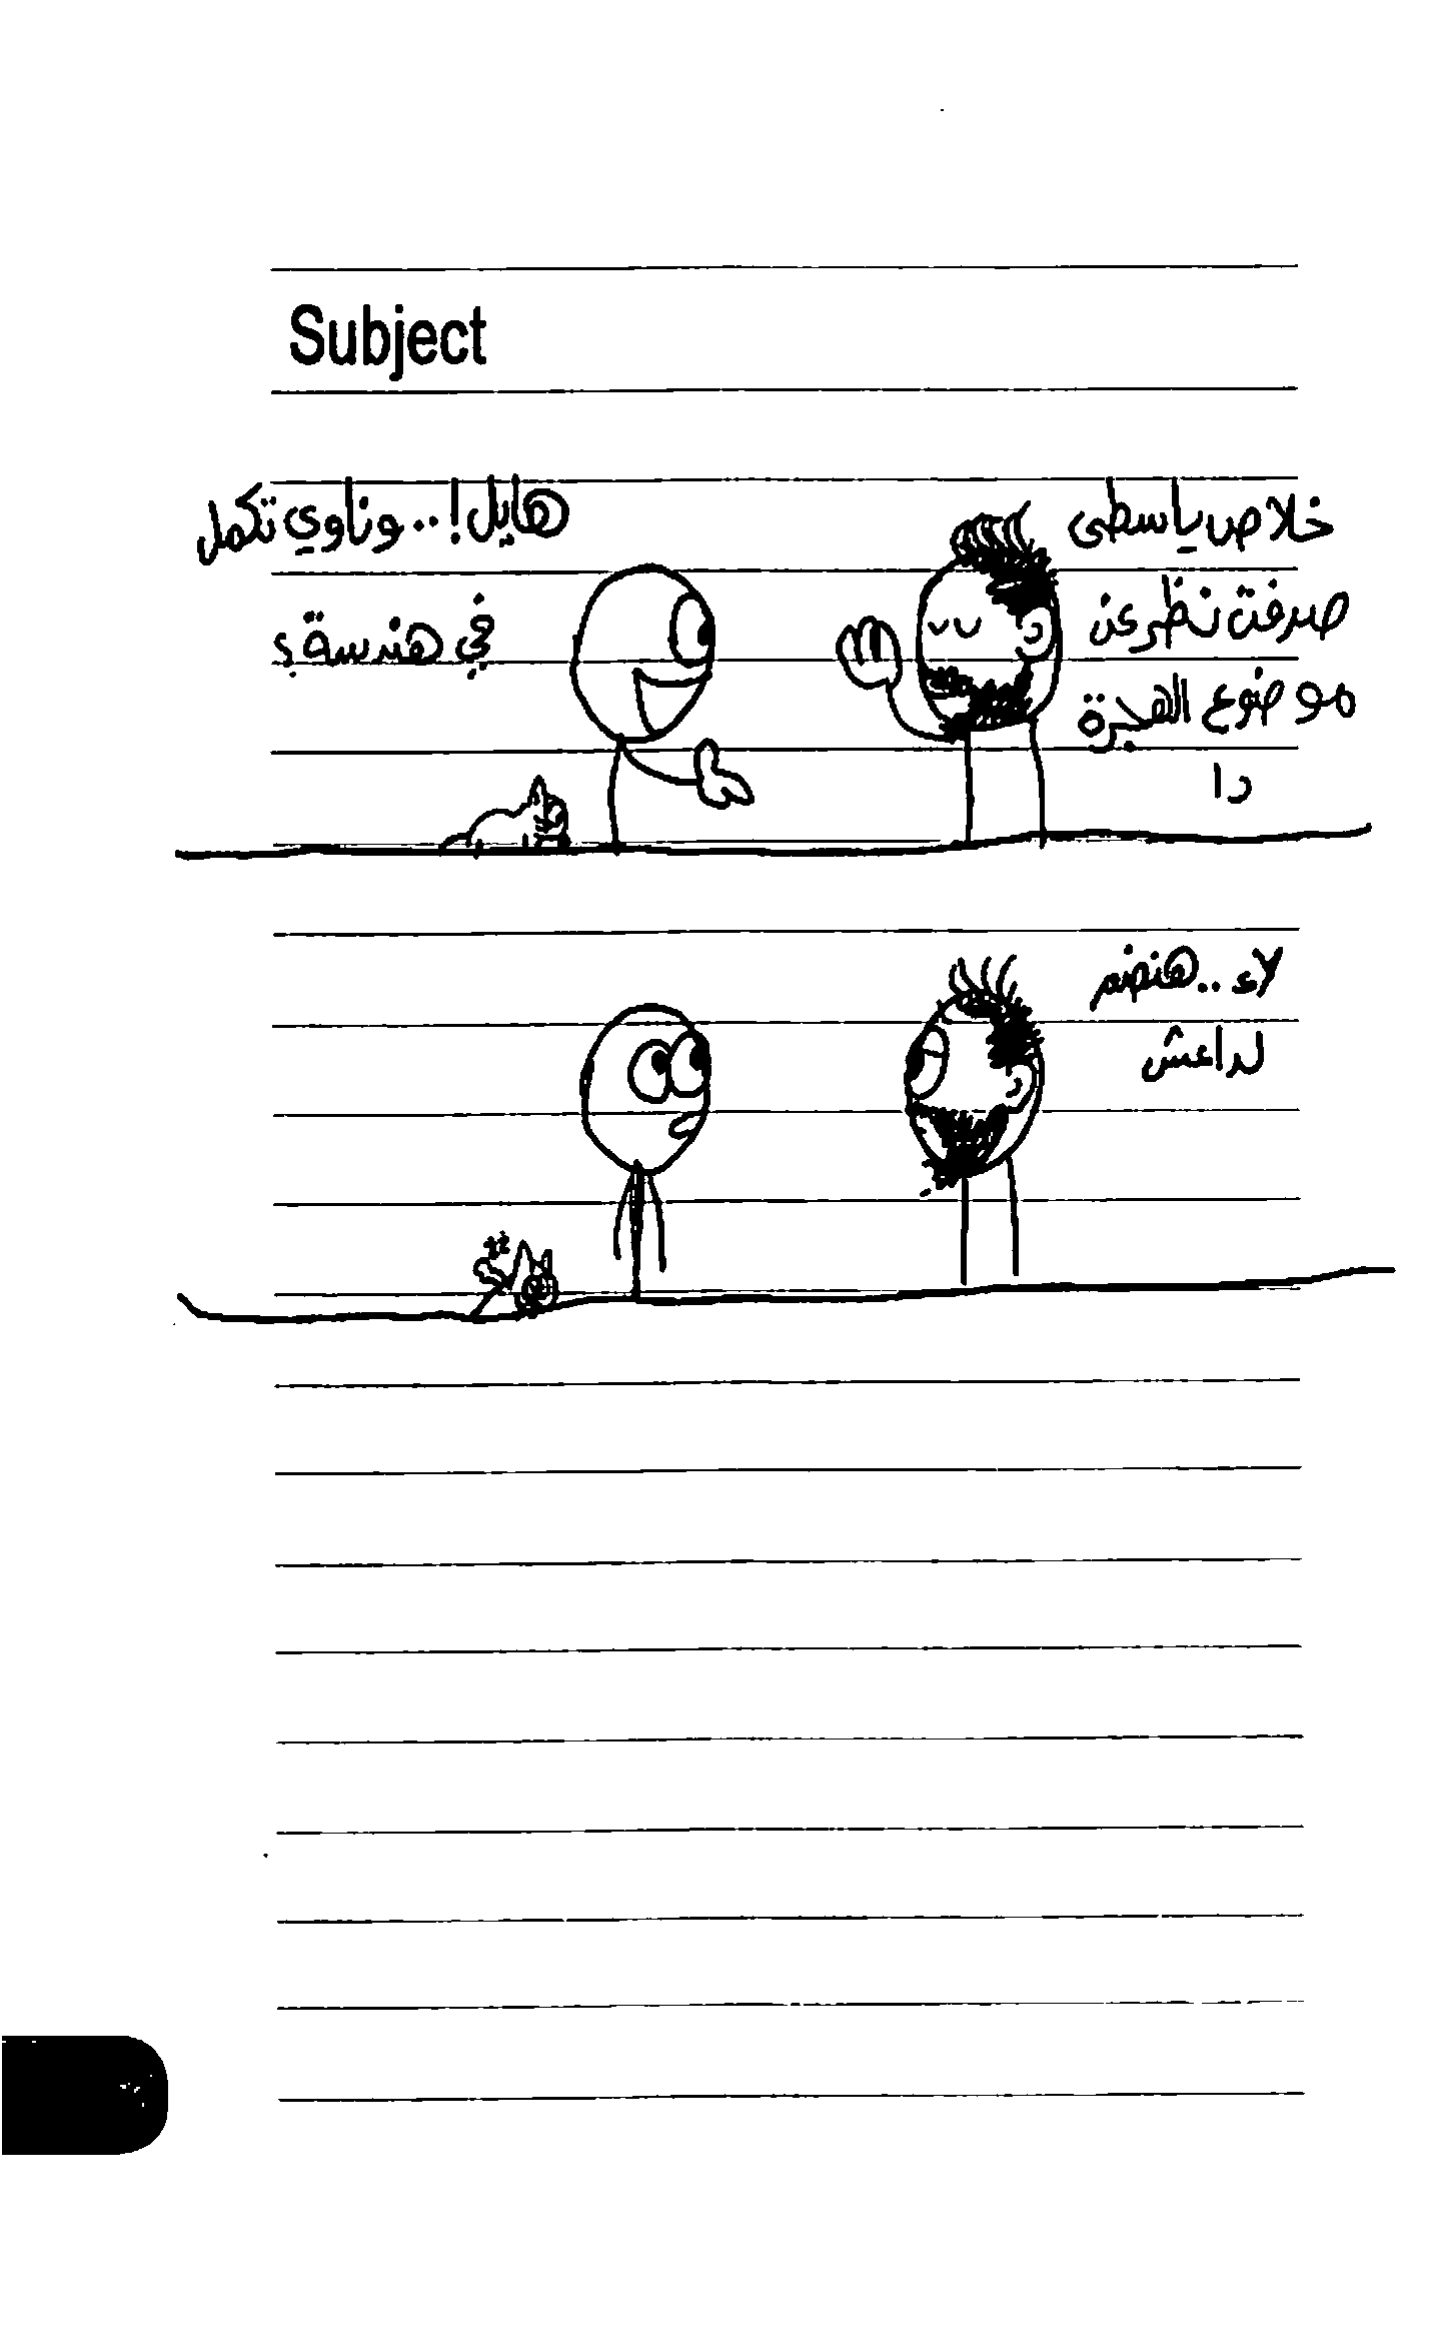 Subject
خلاص ياسطى
صرفت نظر عن
موضوع الهجرة
دا
هايل!.. وناوي تكمل
في هندسة؟
لاء.. هنضم
لداعش